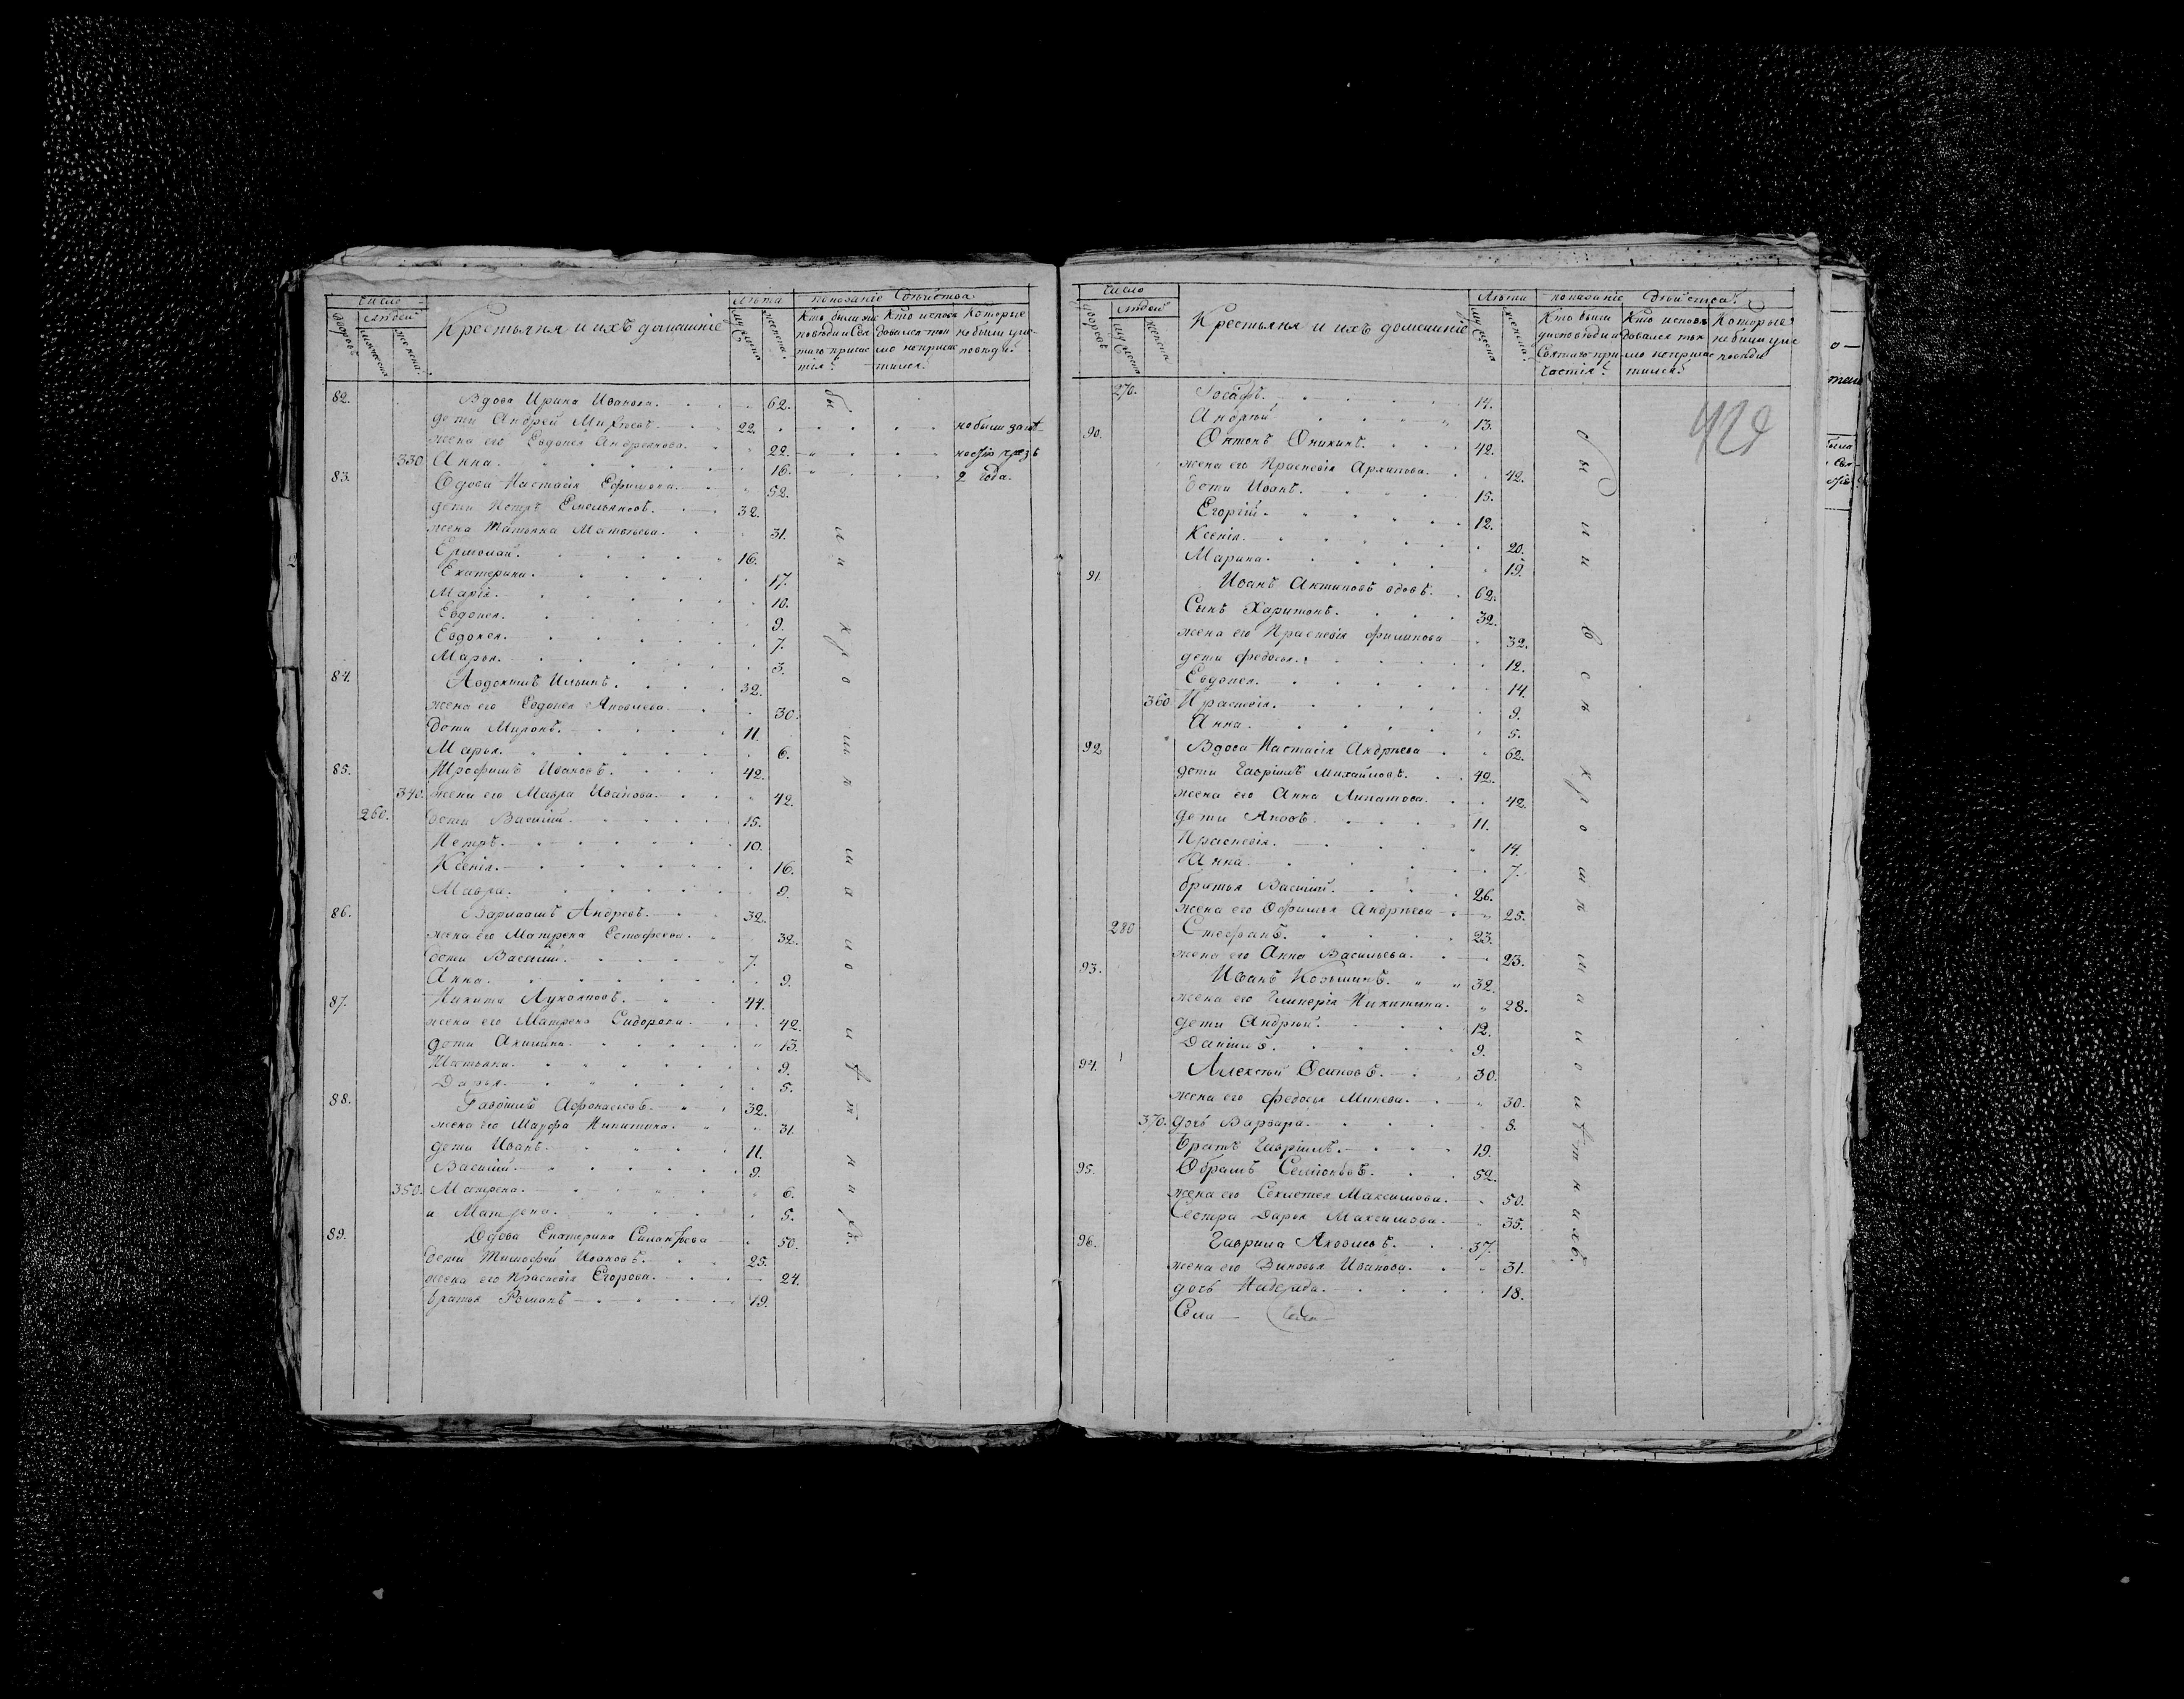 Число
Людей
Дворовъ
Мужеска
Женска.
Крестьяня и ихъ домашніе
Лѣта
Мужеска
Женска.
показаніе
Кто были
Кто исповѣ
довался токмо
непричас
тился.
Которые
не были
82. Вдова Ирина Иванова. 62.
дети Андрей 22. не были за от
жена его Евдокея Андреянова. 22.
330 Анна. 16. 2 года.
83. Вдова Настасія Ефимова. 52.
дети Петръ Емельяновъ. 32.
жена Татьяна Матвѣева. 31.
Ермолай. 16.
Екатерина. 17.
Марія. 10.
Евдокея. 9.
Евдокея. 7.
Марья. 3.
84. Авдокимъ Ильинъ. 32.
жена его Евдокея Яковлева. 30.
дети Миронъ. 11.
Марья. 6.
85. Трофимъ Ивановъ. 42.
340. жена его Мавра Иванова. 42.
260. дети Василій. 15.
Петръ. 10.
Ксенія. 16.
Мавра. 9.
86. Варлаамъ Андреевъ. 32.
жена его Матрена Естафеева. 32.
дети Василій. 7.
Анна. 9.
87. Никита Лукояновъ. 44.
жена его Матрена Сидорова. 42.
дети Акилина. 13.
Татьяна. 9.
Дарья. 5.
88. Гавріилъ Афонасьевъ. 32.
жена его Марфа Никитина. 31.
дети Иванъ. 11.
Василій. 9.
350. Матрена. 6.
и Матрена. 5.
89. Вдова Екатерина Силантьева 50.
дети Тимофей Ивановъ. 25.
жена его Праскевія Егорова. 24.
братья Романъ 19.
Число
Людей
Дворовъ
Мужеска
Женска
Крестьяня и ихъ домашніе
Лѣта
Мужеска
Женска.
показаніе дѣйства.
Кто были
Святаго при
частія.
Кто исповѣ
довался ток
мо непричас
тился.
Которые
не были у ис
повѣди
270. Іосафъ. 14.
Андрѣй 13.
429
90. Антонъ Аникинъ. 42.
жена его Праскевія Архипова. 42.
дети Иванъ. 15.
Егорій. 12.
Ксенія. 20.
Марина. 19.
91. Иванъ Антиповъ вдовъ. 62.
Сынъ Харитонъ. 32.
жена его Праскевія Филипова 32.
дети Федосья. 12.
Евдокея. 14.
360 Праскевія. 9.
Анна. 5.
92 Вдова Настасія Андрѣева 62.
дети Гавріилъ Михайловъ. 42.
жена его Анна Липатова. 42.
дети Яковъ 11.
Праскевія. 14.
Анна. 7.
братья Василій. 26.
жена его Офимья Андрѣева 25.
280 Стефанъ. 23.
жена его Анна Васильева. 23.
93. Иванъ Козьминъ. 32.
жена его Гликерія Никитина. 28.
дети Андрѣй. 12.
Даніилъ. 9.
94. Алексѣй Осиповъ. 30.
жена его Федосья Минеева. 30.
370. дочь Варвара. 8.
братъ Гавріилъ. 19.
95. Абрамъ Семіоновъ. 52.
жена его Секлетея Максимова. 50.
Сестра Дарья Максимова. 35.
96. Гаврила Яковлевъ. 37.
жена его Зиновья Иванова. 31.
дочь Надежда. 18.
Села